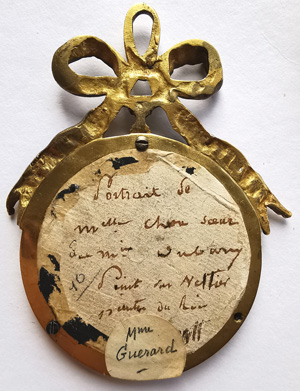 Portrait de
melle chon sœur
de mme Dubarry
Peint par Nattier
peintre du Roi
Mme
Guerard